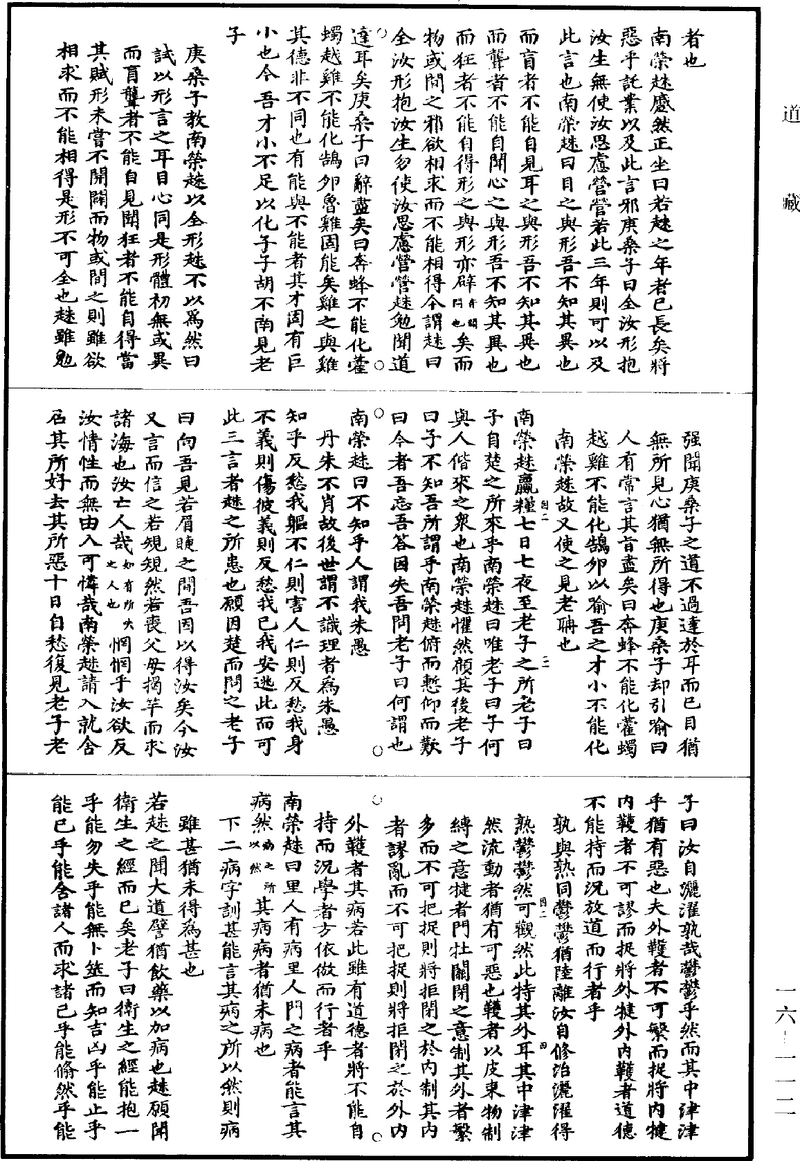 道藏
者也
南榮趎蹙然正坐曰若趎之年者已長矣將
惡乎託業以及此言邪庚桑子曰全汝形抱
汝生無使汝思慮營營若此三年則可以及
此言也南榮趎曰目之與形吾不知其異也
而盲者不能自見耳之與形吾不知其異也
而聾者不能自聞心之與形吾不知其異也
而狂者不能自得形之與形亦辟亦開闢也矣而
物或間之邪欲相求而不能相得今謂趎曰
全汝形抱汝生勿使汝思慮營營趎勉聞道
達耳矣庚桑子曰辭盡矣曰奔蜂不能化藿
蠋越雞不能化鵠卵魯雞固能矣雞之與雞
其德非不同也有能與不能者其才固有巨
小也今吾才小不足以化子子胡不南見老
子
庚桑子教南榮趎以全形趎不以爲然曰
試以形言之耳目心同是形體初無或異
而盲聾者不能自見聞狂者不能自得當
其賦形未嘗不開闢而物或間之則雖欲
相求而不能相得是形不可全也趎雖勉
强聞庚桑子之道不過達於耳而已目猶
無所見心猶無所得也庚桑子却引喻曰
人有常言其言盡矣曰奔蜂不能化藿蠋
越雞不能化鵠卵以喻吾之才小不能化
南榮趎故又使之見老聃也
南榮趎贏糧七日七夜至老子之所老子曰
子自楚之所來乎南榮趎曰唯老子曰子何
與人偕來之衆也南榮趎懼然顧其後老子
曰子不知吾所謂乎南榮趎俯而慙仰而歎
曰今者吾忘吾答因失吾問老子曰何謂也
南榮趎曰不知乎人謂我朱愚
丹朱不肖故後世謂不識理者爲朱愚
知乎反愁我軀不仁則害人仁則反愁我身
不義則傷彼義則反愁我已我安逃此而可
此三言者趎之所患也願因楚而問之老子
曰向吾見若眉睫之間吾因以得汝矣今汝
又言而信之若規規然若喪父母揭竿而求
諸海也汝亡人哉如有所失之人也惘惘乎汝欲反
汝情性而無由入可憐哉南榮趎請入就舍
召其所好去其所惡十日自愁復見老子老
子曰汝自灑濯孰哉鬱鬱乎然而其中津津
乎猶有惡也夫外韄者不可繁而捉將內揵
內韄者不可謬而捉將外揵外內韄者道德
不能持而況放道而行者乎
孰與熟同鬱鬱猶陸離汝自修治灑濯得
熟鬱鬱然可觀然此特其外耳其中津津
然流動者猶有可惡也韄者以皮束物制
縛之意揵者門牡關閉之意制其外者繁
多而不可把捉則將拒閉之於內制其內
者謬亂而不可把捉則將拒閉之於外內
外韄者其病若此雖有道德者將不能自
持而況學者方依倣而行者乎
南榮趎曰里人有病里人問之病者能言其
病然病之所以然其病病者猶未病也
下二病字訓甚能言其病之所以然則病
雖甚猶未得為甚也
若趎之聞大道譬猶飲藥以加病也趎願聞
衛生之經而已矣老子曰衛生之經能抱一
乎能勿失乎能無卜筮而知吉凶乎能止乎
能已乎能舍諸人而求諸己乎能翛然乎能
一六—一一二